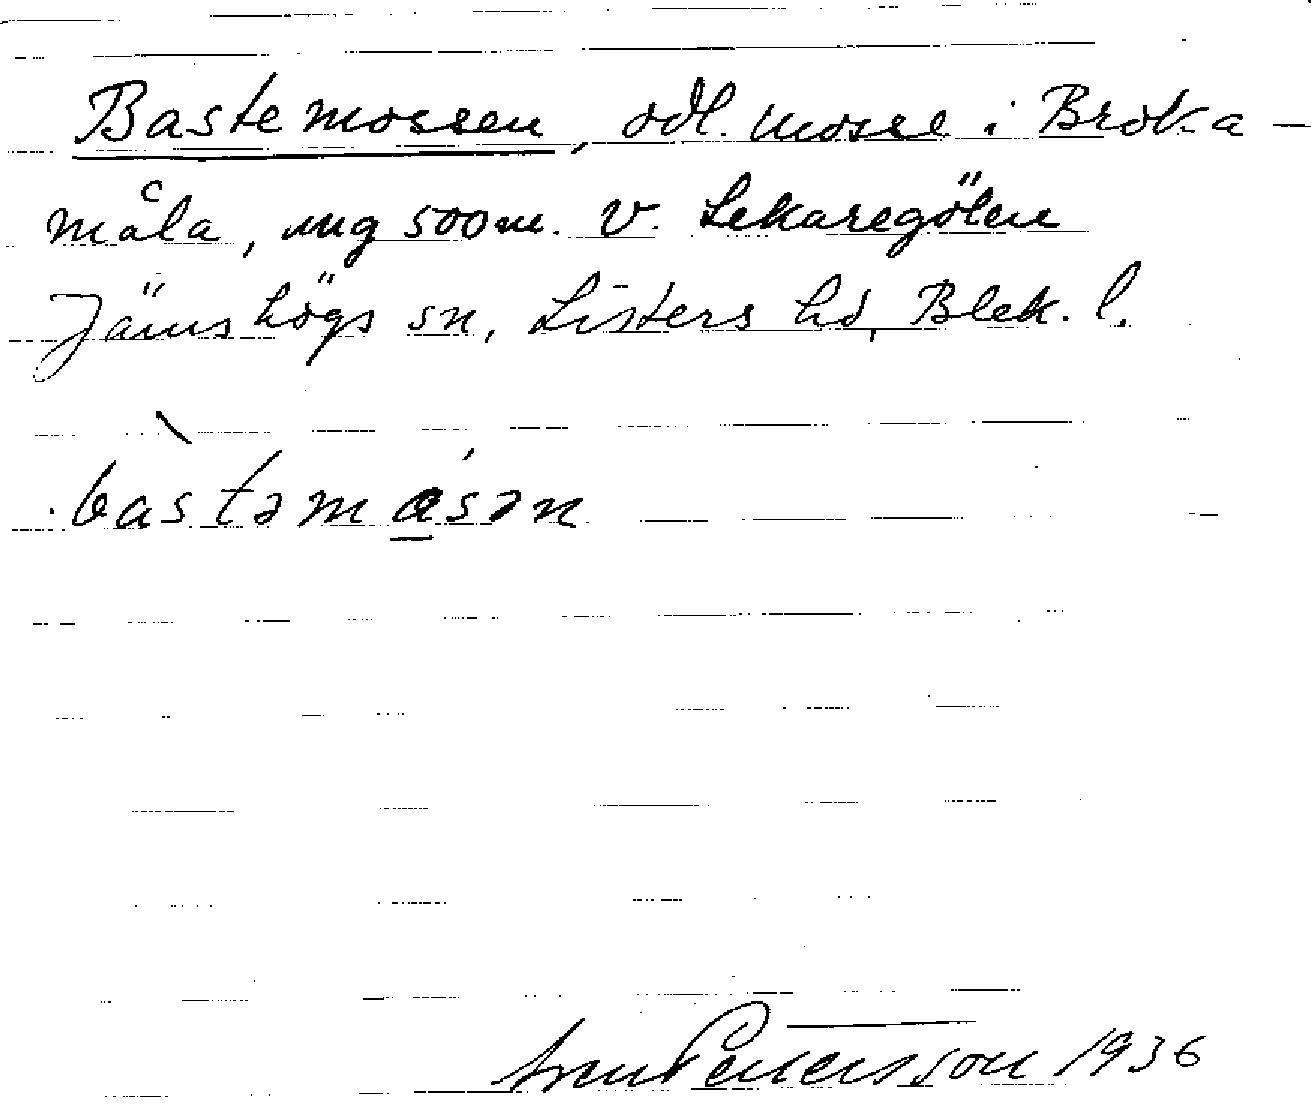 Bastemossen, odl. mosse i Broka-
måla, ung 500 m. V. Lekaregölen
Jämshögs sn, Listers hd, Blek. l.
bàstəmásən
Pettersson 1936